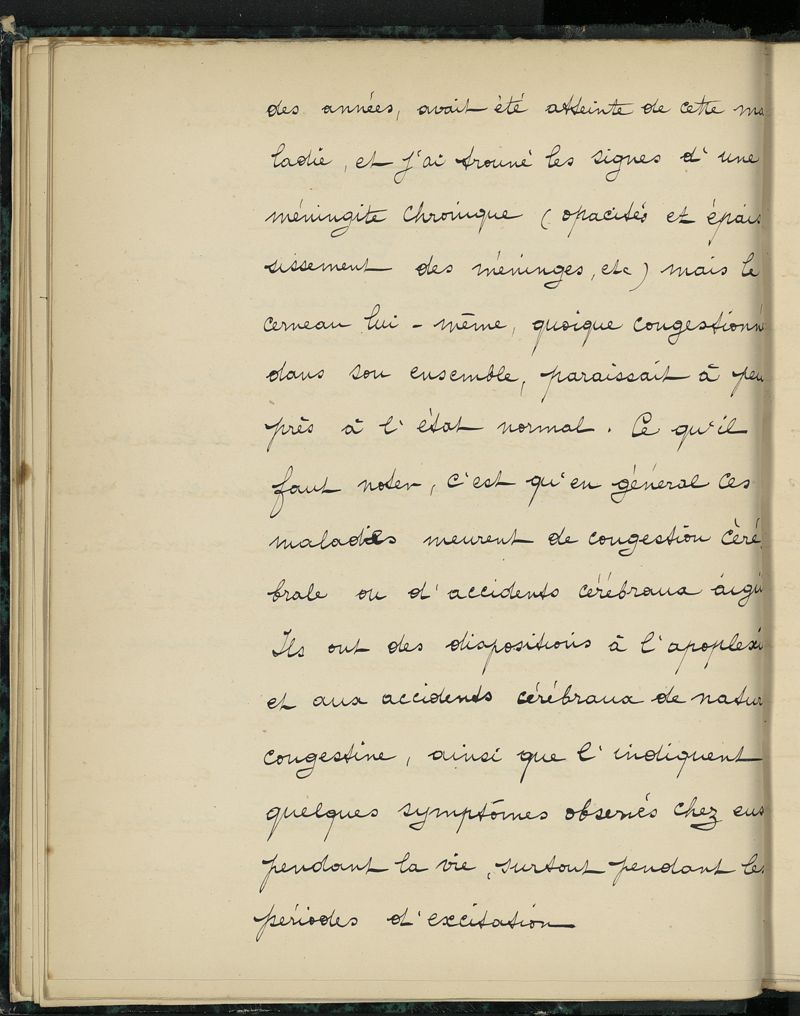 des années, avait été atteinte de cette ma
ladie, et j'ai trouvé les signes d'une
méningite chronique (opacités et épais
sissement des méninges, etc) mais le
cerveau lui-même, quoique congestionné
dans son ensemble, paraissait à peu
près à l'état normal. Ce qu'il
faut noter, c'est qu'en général ces
maladies meurent de congestion céré
brale ou d'accidents cérébraux aigü
Ils ont des dispositions à l'apoplexi
et aux accidents cérébraux de natur
congestive, ainsi que l'indiquent
quelques symptômes observés chez eux
pendant la vie, surtout pendant les
périodes d'excitation